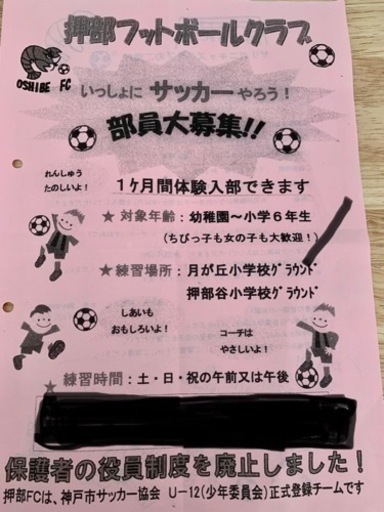 押部フットボールクラブ
OSHIBE FC
いっしょに サッカー やろう！
部員大募集!!
れんしゅう
たのしいよ！
１ヶ月間体験入部できます
★ 対象年齢：幼稚園～小学６年生
（ちびっ子も女の子も大歓迎！）
★練習場所：月が丘小学校ｸﾞﾗｳﾝﾄﾞ
押部谷小学校ｸﾞﾗｳﾝﾄﾞ
しあいも
おもしろいよ！
コーチは
やさしいよ！
★ 練習時間：土・日・祝の午前又は午後
保護者の役員制度を廃止しました！
押部FCは、神戸市サッカー協会 U－12(少年委員会)正式登録チームです